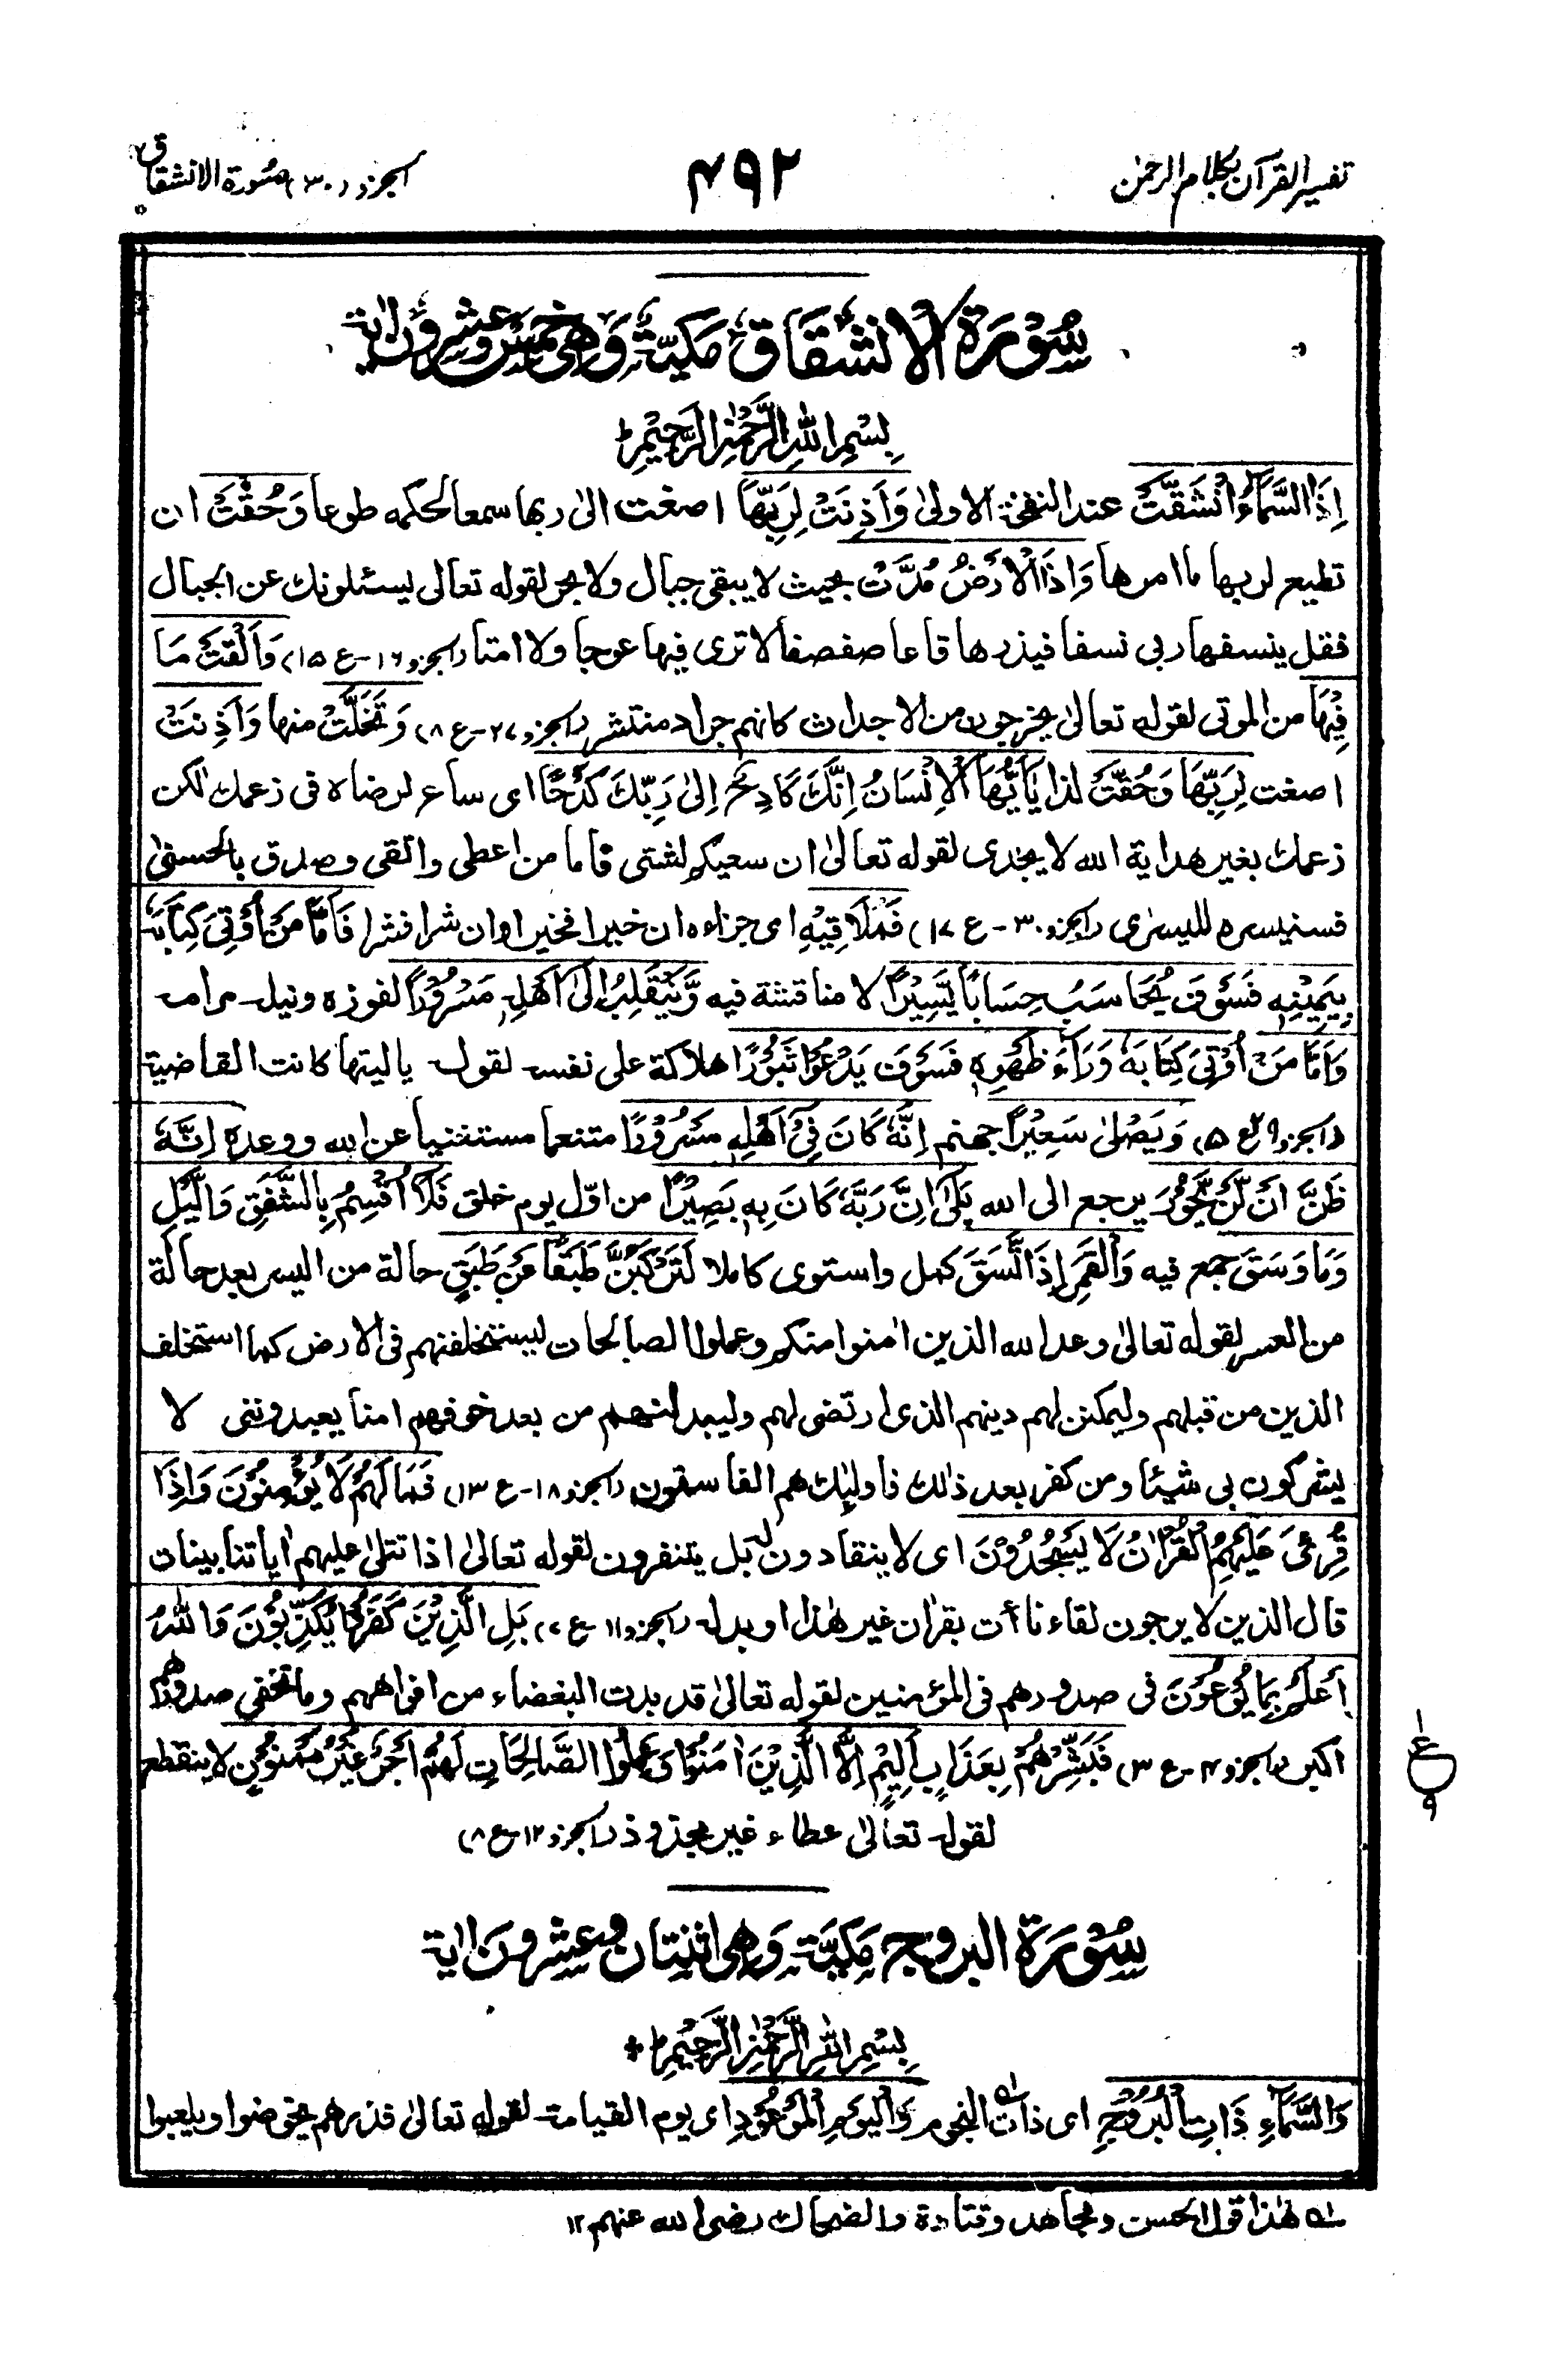 تفسير القرآن بكلام الرحمٰن
٤٩٢
الجزو (٣٠) سُورة الانشقاق
سُوْرَةُ الانشقَاق مَكيّة وَهی خمسٌ وعشرون اٰية
بِسْمِ اللهِ الرَّحْمٰنِ الرَّحِيْمِ ط
اِذَا السَّمَآءُ انْشَقَّتْ عند النفخۃ الاولیٰ وَاَذِنَتْ لِرَبِّهَا اصغت الیٰ ربها سمعا لحکمه طوعا وَحُقَّتْ ان
تطيع لربها ما امرها وَاِذَا الْاَرْضُ مُدَّتْ بحيث لا يبقی جبال ولا بحر لقوله تعالی يسئلونك عن الجبال
فقل ينسفها ربی نسفا فيذرها قاعا صفصفا لا تری فيها عوجا ولا امتا (الجزو ١٦-ع ١٥) وَاَلْقَتْ مَا
فِيْهَا من الموتی لقوله تعالیٰ يخرجون من الاجداث كانهم جراد منتشر (الجزو ٢٧-ع ٨) وَتَخَلَّتْ منها وَاَذِنَتْ
اصغت لِرَبِّهَا وَحُقَّتْ لذا يٰاَيُّهَا الْاِنْسَانُ اِنَّكَ كَادِحٌ اِلیٰ رَبِّكَ كَدْحًا ای ساع لرضاه فی زعمك لٰكن
زعمك بغير هداية الله لا يجدی لقوله تعالیٰ ان سعيكم لشتی فاما من اعطی واتقی وصدق بالحسنیٰ
فسنيسره لليسرٰی (الجزو ٣٠-ع ١٧) فَمُلَاقِيْهِ ای جزاءه ان خيرا فخير اوان شرا فشر فَاَمَّا مَنْ اُوْتِیَ كِتَابَهٗ
بِيَمِيْنِهٖ فَسَوْفَ يُحَاسَبُ حِسَابًا يَّسِيْرًا لا مناقشة فيه وَّيَنْقَلِبُ اِلیٰ اَهْلِهٖ مَسْرُوْرًا لفوزه ونيله مرامه
وَاَمَّا مَنْ اُوْتِیَ كِتَابَهٗ وَرَآءَ ظَهْرِهٖ فَسَوْفَ يَدْعُوْا ثُبُوْرًا هلاكة علی نفسه لقوله ياليتها كانت القاضية
(الجزو ٢٩ ع ٥) وَيَصْلیٰ سَعِيْرًا جهنم اِنَّهٗ كَانَ فِیْ اَهْلِهٖ مَسْرُوْرًا متنعما مستغنيا عن الله ووعده اِنَّهٗ
ظَنَّ اَنْ لَّنْ يَّحُوْرَ يرجع الی الله بَلیٰ اِنَّ رَبَّهٗ كَانَ بِهٖ بَصِيْرًا من اوّل يوم خلق فَلَا اُقْسِمُ بِالشَّفَقِ وَاللَّيْلِ
وَمَا وَسَقَ جمع فيه وَالْقَمَرِ اِذَا اتَّسَقَ كمل واستوی كاملا لَتَرْكَبُنَّ طَبَقًا عَنْ طَبَقٍ حالة من اليسر بعد حالة
من العسر لقوله تعالیٰ وعد الله الذين اٰمنوا منكم وعملوا الصالحات ليستخلفنهم فی الارض كما استخلف
الذين من قبلهم وليمكنن لهم دينهم الذی ارتضی لهم وليبدلنهم من بعد خوفهم امنا يعبدوننی لا
يشركون بی شيئا ومن كفر بعد ذالك فاولٰئك هم الفاسقون (الجزو ١٨-ع ١٣) فَمَا لَهُمْ لَا يُؤْمِنُوْنَ وَاِذَا
قُرِئَ عَلَيْهِمُ الْقُرْاٰنُ لَا يَسْجُدُوْنَ ای لا ينقادون له بل يتنفرون لقوله تعالیٰ اذا تتلیٰ عليهم اٰياتنا بينات
قال الذين لا يرجون لقاءنا أت بقراٰن غير هٰذا او بدله (الجزو ١١-ع ٧) بَلِ الَّذِيْنَ كَفَرُوْا يُكَذِّبُوْنَ وَاللهُ
اَعْلَمُ بِمَا يُوْعُوْنَ فی صدورهم فی المؤمنين لقوله تعالیٰ قد بدت البغضاء من افواههم وما تخفی صدورهم
اكبر (الجزو ٤-ع ٣) فَبَشِّرْهُمْ بِعَذَابٍ اَلِيْمٍ اِلَّا الَّذِيْنَ اٰمَنُوْا وَعَمِلُوا الصَّالِحَاتِ لَهُمْ اَجْرٌ غَيْرُ مَمْنُوْنٍ لا ينقطع
لقوله تعالیٰ عطاء غير مجذوذ (الجزو ١٢-ع ٨)
١
ع
٩
سُوْرَة البروج مَكيَّة وَهی اثنتان وعشرون اٰية
بِسْمِ اللهِ الرَّحْمٰنِ الرَّحِيْمِ ط
وَالسَّمَآءِ ذَاتِ الْبُرُوْجِ ای ذات النجوم له وَالْيَوْمِ الْمَوْعُوْدِ ای يوم القيامة لقوله تعالیٰ فذرهم يخوضوا ويلعبوا
له هٰذا قول الحسن ومجاهد وقتادة والضحاك رضی الله عنهم ١٢